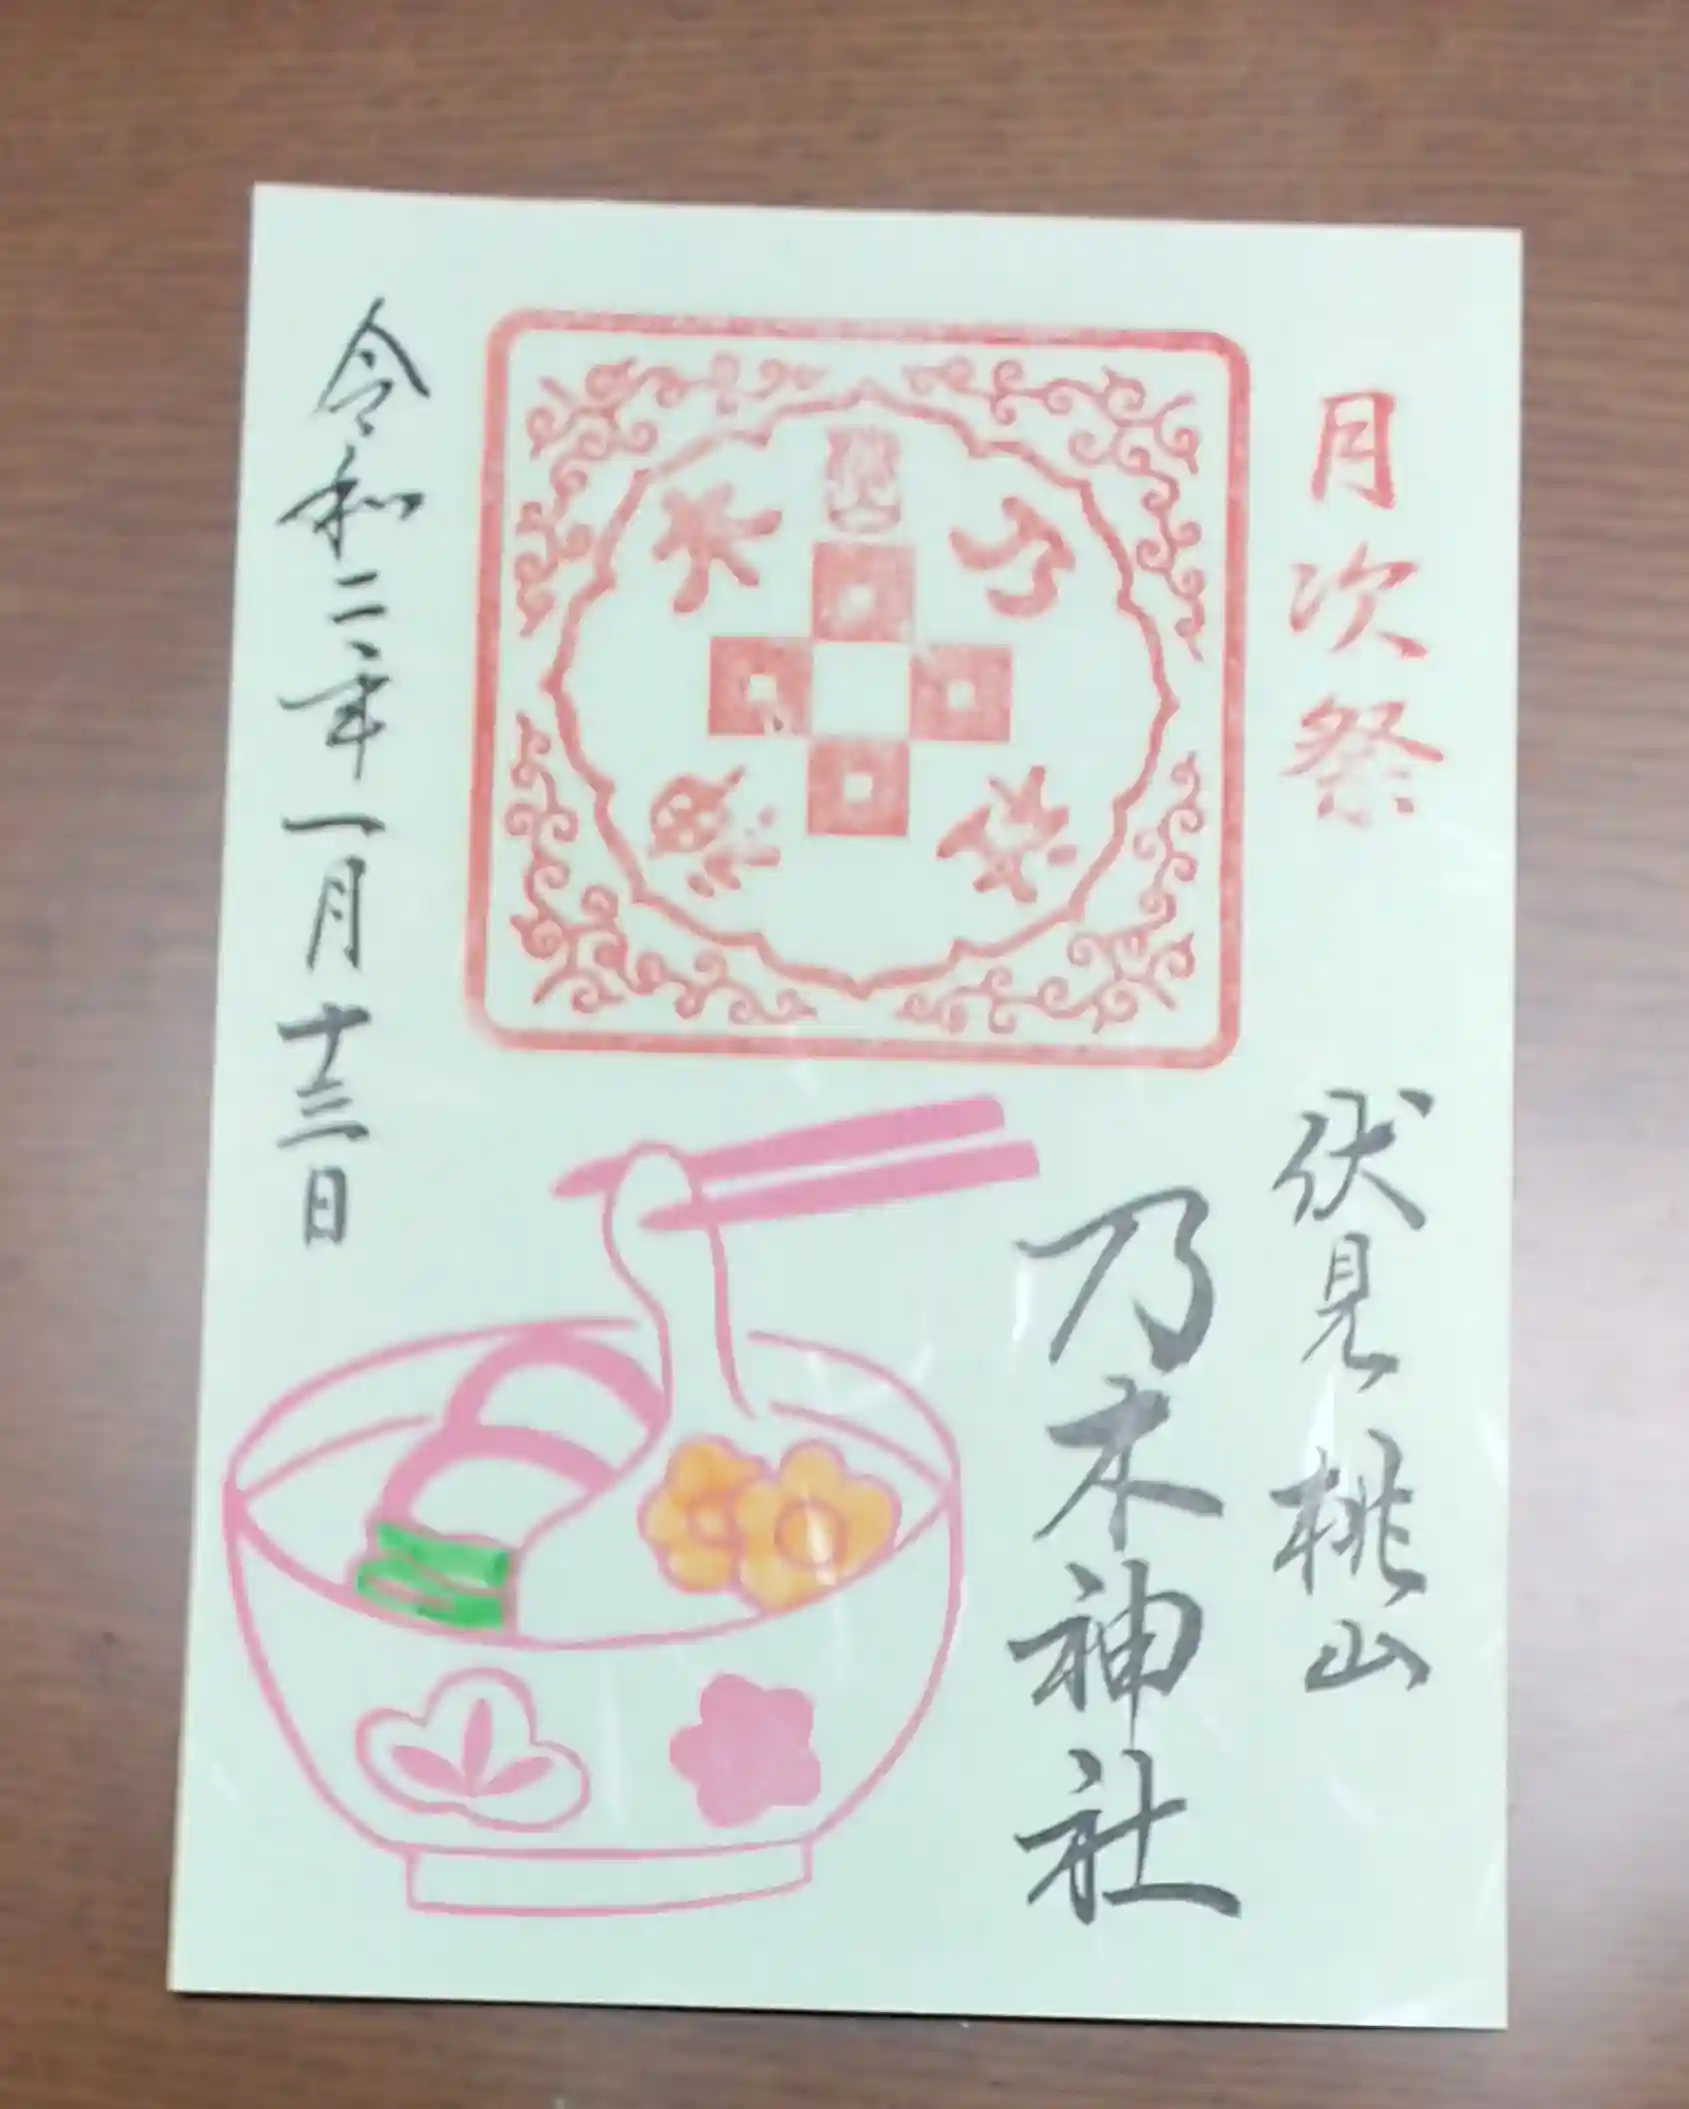 月次祭
伏見桃山
乃木神社
乃木
令和二年一月十三日